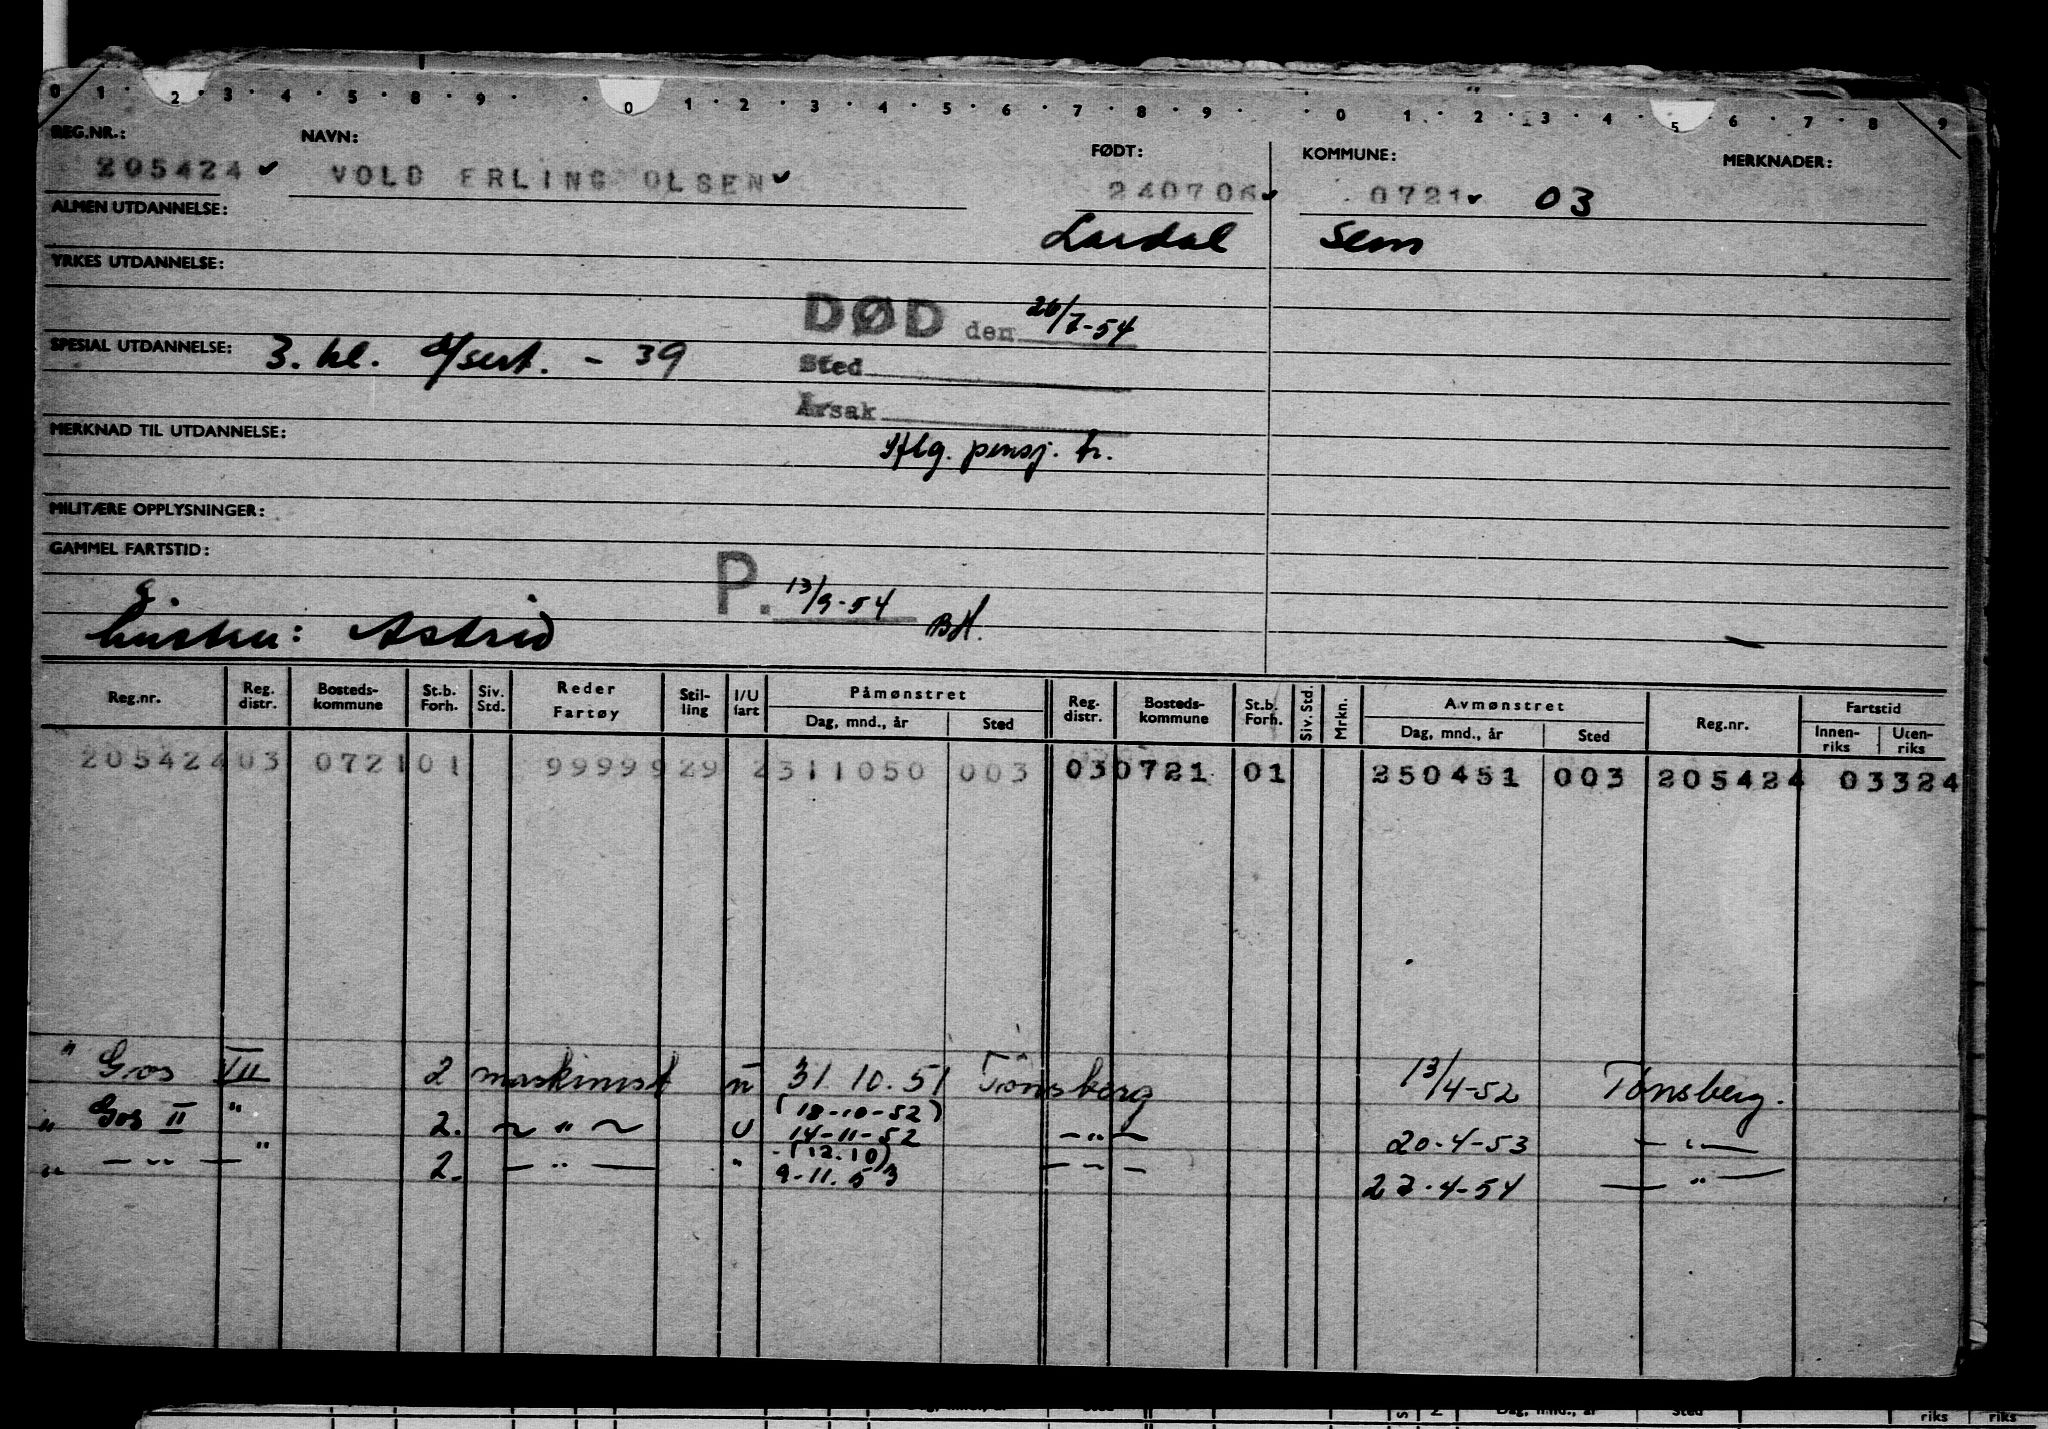 0 1 2 3 4 5 8 9 0 1 2 3 4 5 6 7 8 9 0 1 2 3 4 5 6 7 8 9
REG.NR.: NAVN: FØDT: KOMMUNE: MERKNADER:
205424 VOLD ERLING OLSEN 240706 0721 03
ALMEN UTDANNELSE: Lardal Sem
YRKES UTDANNELSE:
DØD den 26/7-54
SPESIAL UTDANNELSE: 3. kl. d/sert. - 39
Sted
Årsak
MERKNAD TIL UTDANNELSE: pensj. tr.
MILITÆRE OPPLYSNINGER:
GAMMEL FARTSTID:
P. 13/9-54 BH.
g.
hustru: Astrid
Reg.nr. Reg. distr. Bosteds-kommune St.b. Forh. Siv. Std. Reder Fartøy Stil-ling I/U fart Påmønstret Dag, mnd., år Sted Reg. distr. Bosteds-kommune St.b. Forh. Siv. Std. Mrkn. Avmønstret Dag, mnd., år Sted Reg.nr. Fartstid Innen-riks Uten-riks
205424 03 0721 01 99999 29 2 311050 003 03 0721 01 250451 003 205424 03324
" Gos VII 2 maskinist u 31.10.51 Tønsberg 13/4-52 Tønsberg.
(18-10-52)
" Gos II " 2. ~ " ~ U 14-11-52 -"- 20-4-53 - " -
(12.10)
" - " - " 2. - " - " 9-11.53 - - - 27-4-54 - " -
Dag, mnd., år Sted riks riks